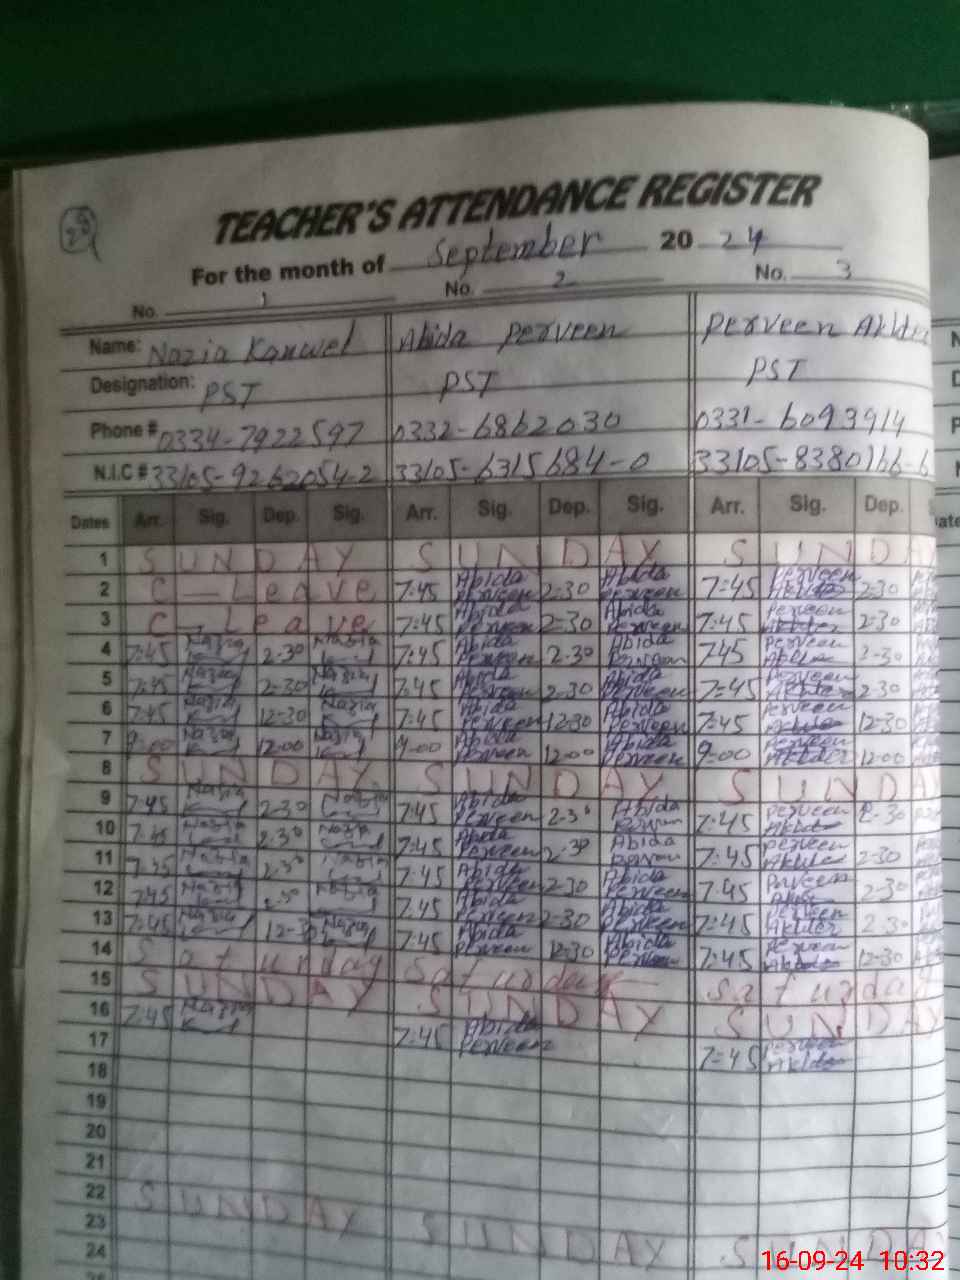 TEACHER'S ATTENDANCE REGISTER
For the month of September 20 24
No. 1 No. 2 No. 3
Name: Nazia Kanwel Abida Perveen Perveen
Designation: PST PST PST
Phone # 0334-7922597 0332-6862030 0331-6093914
N.I.C # 33105-9262054-2 33105-6315684-0 33105-8380166-6
Dates Arr. Sig. Dep. Sig. Arr. Sig. Dep. Sig. Arr. Sig. Dep.
1 SUNDAY SUNDAY SUNDA
2 C-Leave 7:45 Abida Perveen 2-30 Abida Perveen 7-45 Perveen Akhter 2-30
3 C-Leave 7:45 Abida Perveen 2-30 Abida Perveen 7:45 Perveen Akhter 2-30
4 7:45 Nazia 2-30 Nazia 7:45 Abida Perveen 2-30 Abida Perveen 7-45 Perveen Akhter 2-30
5 7:45 Nazia 2-30 Nazia 7:45 Abida Perveen 2-30 Abida Perveen 7-45 Perveen Akhter 2-30
6 7:45 Nazia 12-30 Nazia 7:45 Abida Perveen 12-30 Abida Perveen 7-45 Perveen Akhter 12-30
7 9-00 Nazia 12-00 Nazia 9-00 Abida Perveen 12-00 Abida Perveen 9-00 Perveen Akhter 12-00
8 SUNDAY SUNDAY SUNDA
9 7:45 Nazia 2-30 Nazia 7:45 Abida Perveen 2-30 Abida Perveen 7:45 Perveen Akhter 2-30
10 7:45 Nazia 2-30 Nazia 7:45 Abida Perveen 2-30 Abida Perveen 7:45 Perveen Akhter 2-30
11 Nazia 2-30 Nazia 7:45 Abida Perveen 2-30 Abida Perveen 7:45 Perveen 2-30
12 7:45 Nazia Nazia 7:45 Abida Perveen 2-30 Abida Perveen 7:45 Perveen Akhter 2-30
13 7:45 Nazia 12-30 Nazia 7:45 Abida Perveen 12-30 Abida Perveen 7:45 Perveen Akhter 12-30
14 Saturday Saturday Saturday
15 SUNDAY SUNDAY SUNDAY
16 7:45 Nazia 7:45 Abida Perveen 7:45 Perveen Akhter
17
18
19
20
21
22 SUNDAY SUNDAY SUNDA
23
24
16-09-24 10:32